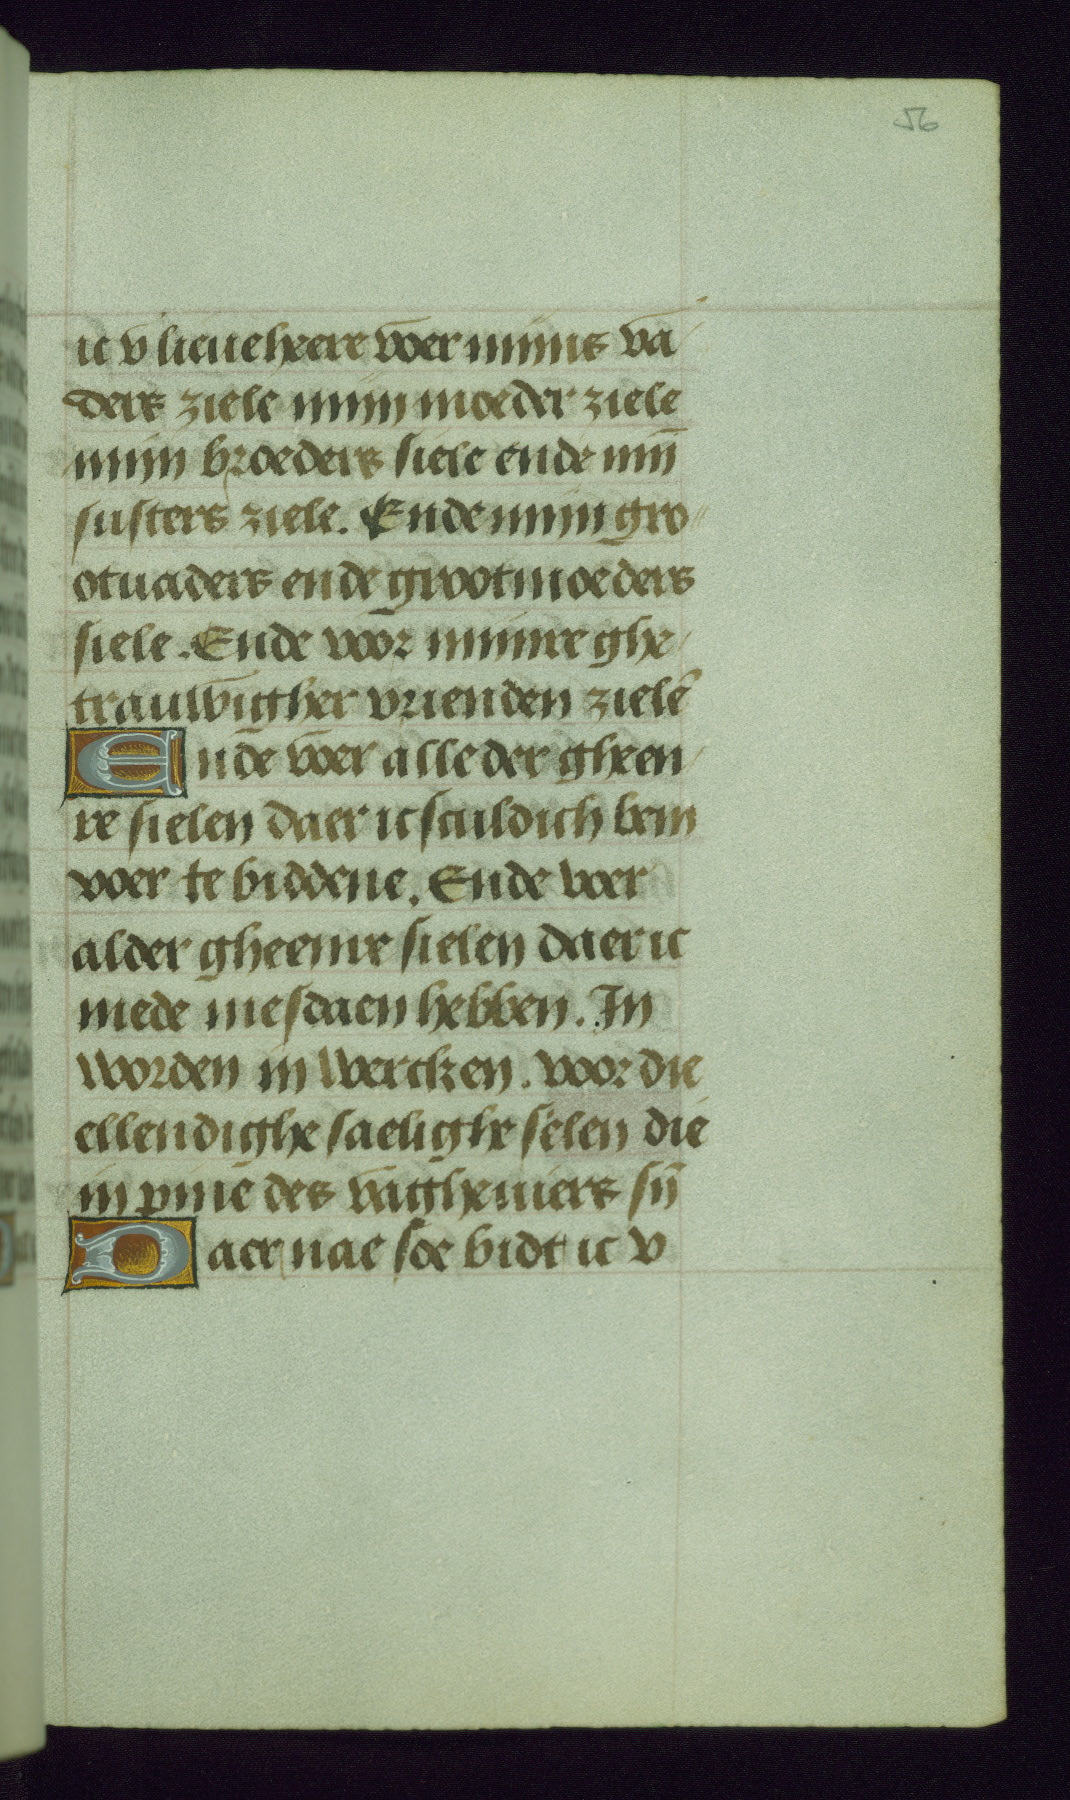 56
ic v lieue heere voer mijns va
ders ziele mijn moeder ziele
mijn broeders siele ende mijn̄
susters ziele. Ende mijn gro
otuaders ende grootmoeders
siele. Ende voor mijnre ghe
trauwigher vrienden zielē
Ende voer alle der gheen
re sielen daer ic sculdich bem
voer te biddene. Ende voer
alder gheenre sielen daer ic
mede mesdaen hebben. In
worden in wercken. voor die
ellendighe saelighe sielen die
in pinē des vagheviers sijn̄
Daer nae soe bidt ic v